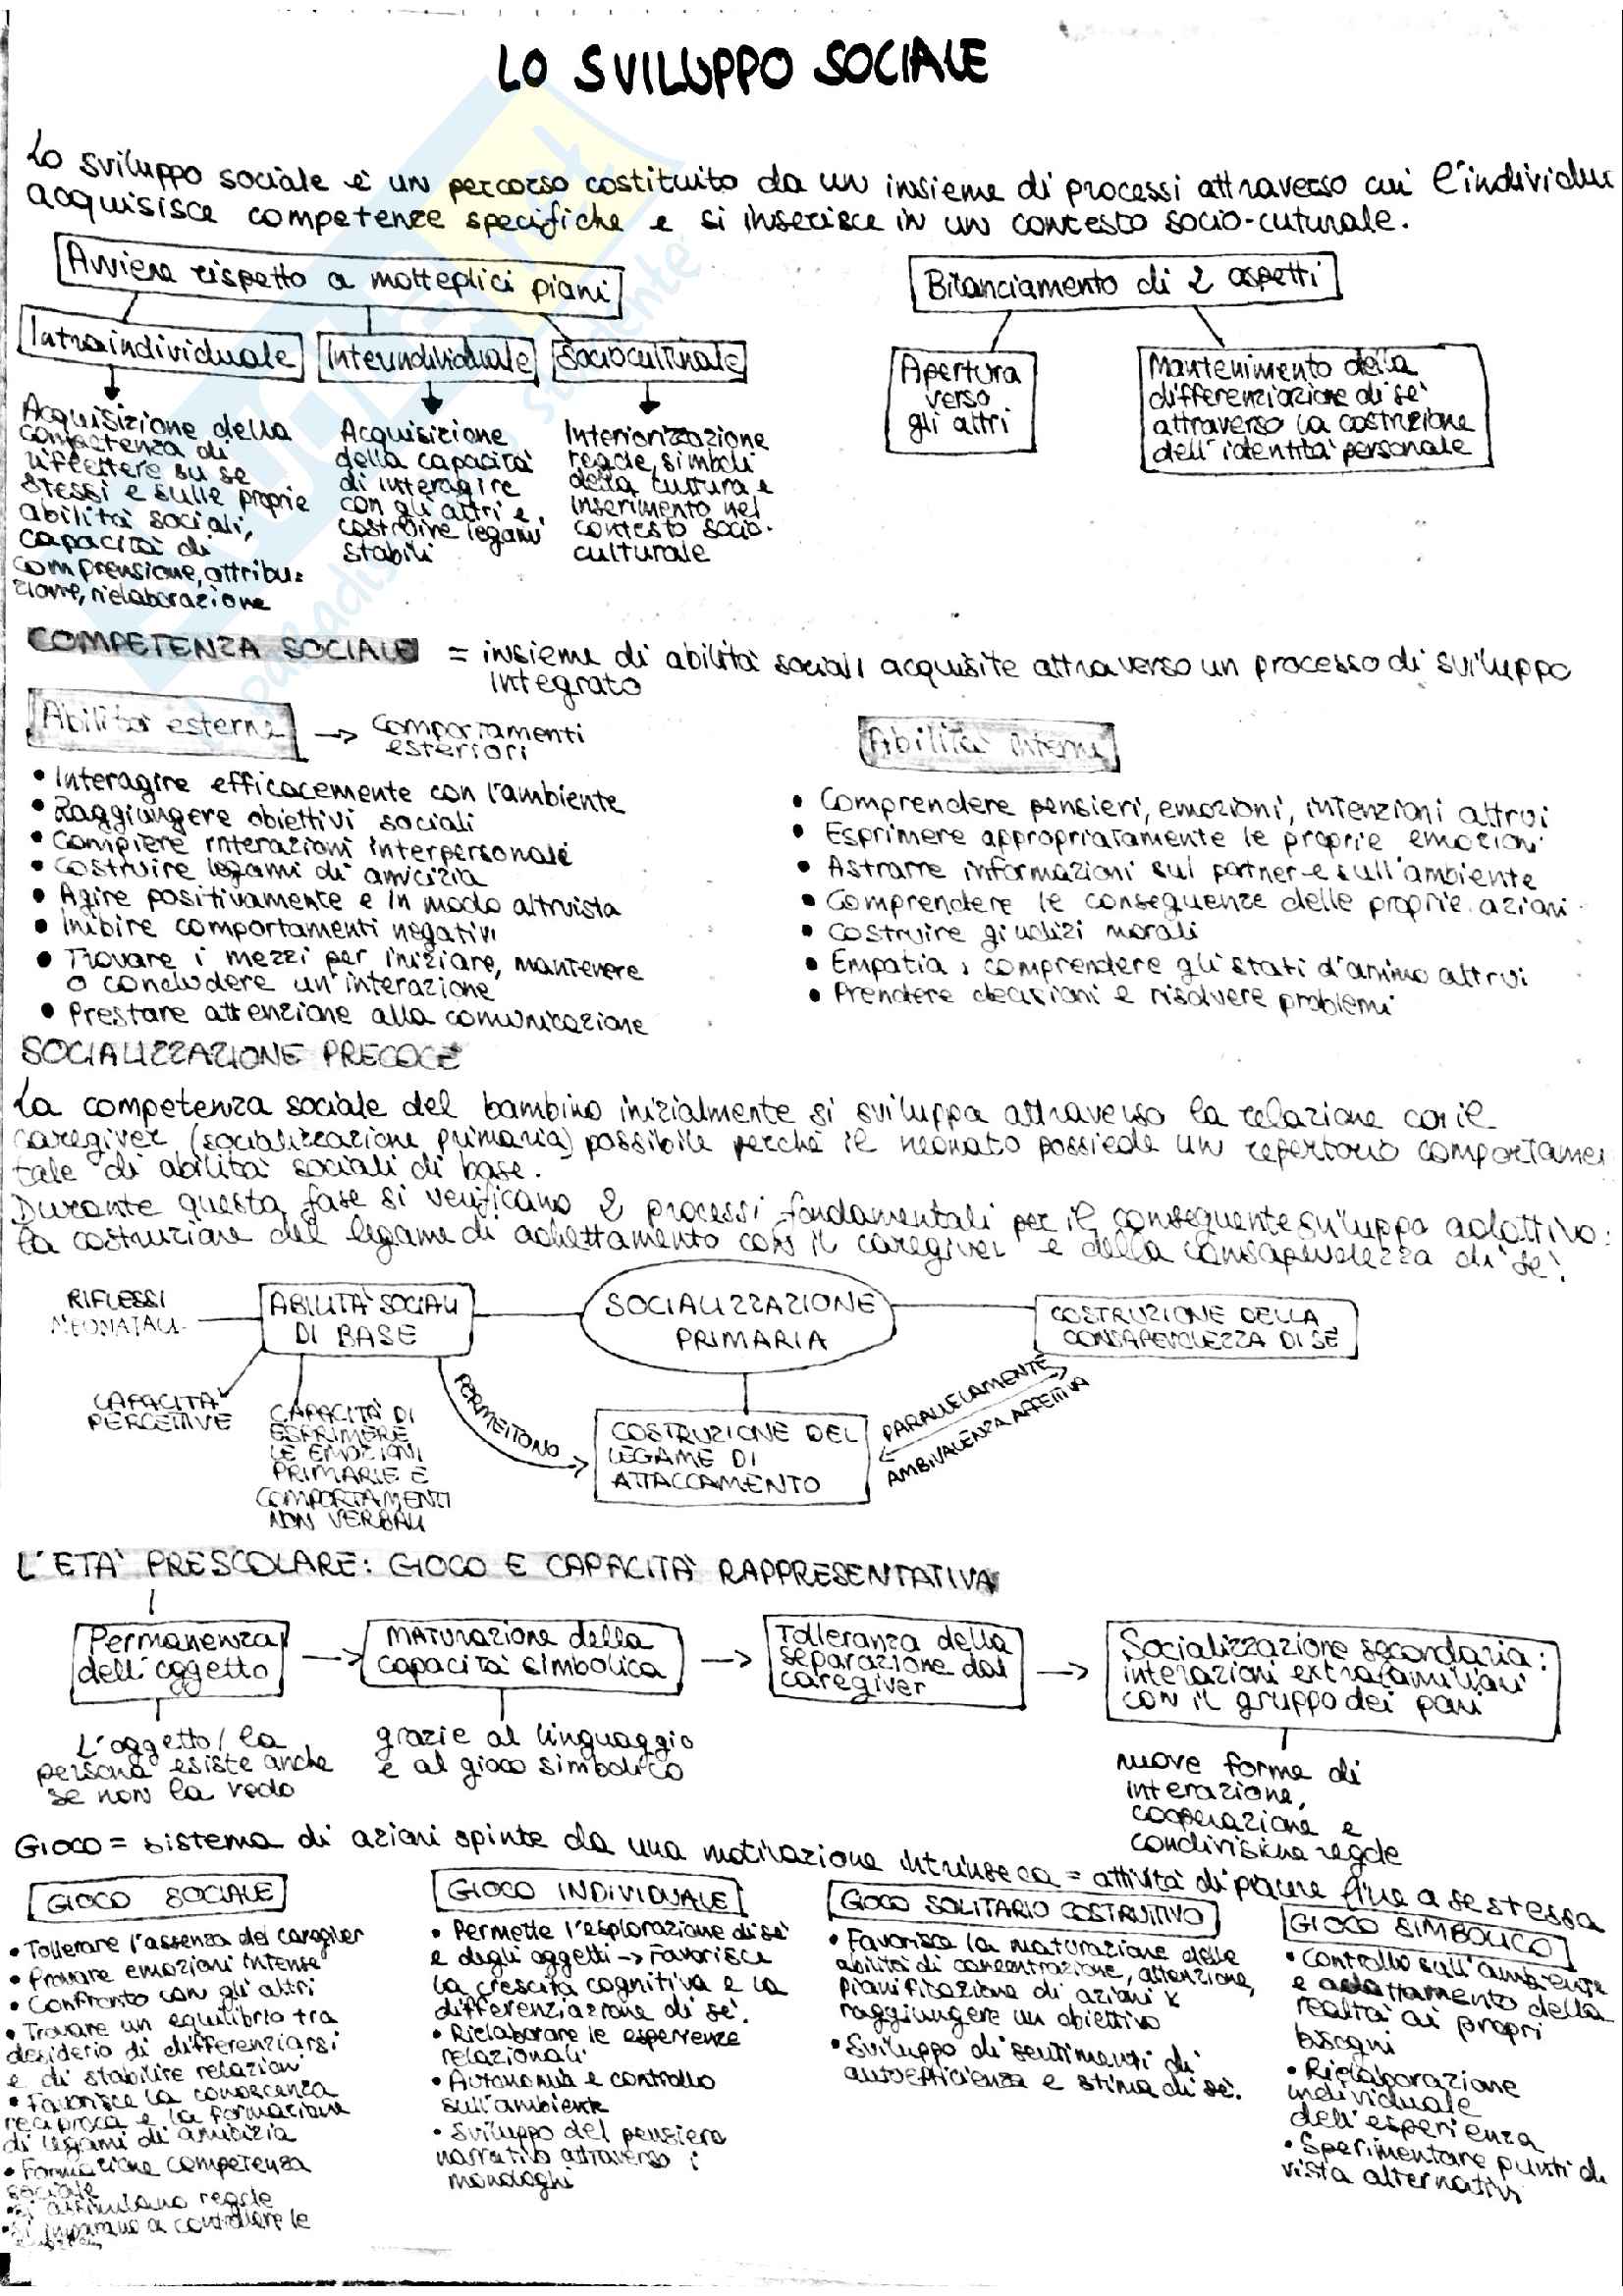 LO SVILUPPO SOCIALE
Lo sviluppo sociale è un percorso costituito da un insieme di processi attraverso cui l'individuo
acquisisce competenze specifiche e si inserisce in un contesto socio-cuturale.
Avviene rispetto a molteplici piani
Intraindividuale
Interindividuale
Socioculturale
Acquisizione della
competenza di
riflettere su se
stessi e sulle proprie
abilità sociali,
capacità di
comprensione, attribu=
zione, rielaborazione
Acquisizione
della capacità
di interagire
con gli altri e
costruire legami
stabili
Interiorizzazione
regole, simboli
della cultura e
inserimento nel
contesto socio-
culturale
Bilanciamento di 2 aspetti
Apertura
verso
gli altri
Mantenimento della
differenziazione di sé
attraverso la costruzione
dell'identità personale
COMPETENZA SOCIALE = insieme di abilità sociali acquisite attraverso un processo di sviluppo
integrato
Abilità esterne → Comportamenti
esteriori
• Interagire efficacemente con l'ambiente
• Raggiungere obiettivi sociali
• Compiere interazioni interpersonali
• Costruire legami di amicizia
• Agire positivamente e in modo altruista
• Inibire comportamenti negativi
• Trovare i mezzi per iniziare, mantenere
o concludere un'interazione
• Prestare attenzione alla comunicazione
Abilità interne
• Comprendere pensieri, emozioni, intenzioni altrui
• Esprimere appropriatamente le proprie emozioni
• Astrarre informazioni sul partner e sull'ambiente
• Comprendere le conseguenze delle proprie azioni
• Costruire giudizi morali
• Empatia, comprendere gli stati d'animo altrui
• Prendere decisioni e risolvere problemi
SOCIALIZZAZIONE PRECOCE
La competenza sociale del bambino inizialmente si sviluppa attraverso la relazione con il
caregiver (socializzazione primaria) possibile perché il neonato possiede un repertorio comportamen
tale di abilità sociali di base.
Durante questa fase si verificano 2 processi fondamentali per il conseguente sviluppo adattivo:
la costruzione del legame di adattamento con il caregiver e della consapevolezza di sé.
RIFLESSI
NEONATALI
ABILITÀ SOCIALI
DI BASE
SOCIALIZZAZIONE
PRIMARIA
COSTRUZIONE DELLA
CONSAPEVOLEZZA DI SÉ
CAPACITÀ
PERCETTIVE
CAPACITÀ DI
ESPRIMERE
LE EMOZIONI
PRIMARIE E
COMPORTAMENTI
NON VERBALI
PERMETTONO
COSTRUZIONE DEL
LEGAME DI
ATTACCAMENTO
PARALLELAMENTE
AMBIVALENZA AFFETTIVA
L'ETÀ PRESCOLARE: GIOCO E CAPACITÀ RAPPRESENTATIVA
Permanenza
dell'oggetto
→ MATURAZIONE della
capacità simbolica
→ Tolleranza della
separazione dal
caregiver
→ Socializzazione secondaria:
interazioni extrafamiliari
con il gruppo dei pari
L'oggetto/la
persona esiste anche
se non la vedo
grazie al linguaggio
e al gioco simbolico
nuove forme di
interazione,
cooperazione e
condivisione regole
GIOCO = sistema di azioni spinte da una motivazione intrinseca = attività di piacere fine a se stessa
GIOCO SOCIALE
• Tollerare l'assenza del caregiver
• Provare emozioni intense
• Confronto con gli altri
• Trovare un equilibrio tra
desiderio di differenziarsi
e di stabilire relazioni
• Favorisce la conoscenza
reciproca e la formazione
di legami di amicizia
• Formazione competenza
sociale
• Si assimilano regole
• Si imparano a controllare le
GIOCO INDIVIDUALE
• Permette l'esplorazione di sé
e degli oggetti → Favorisce
la crescita cognitiva e la
differenziazione di sé.
• Rielaborare le esperienze
relazionali
• Autonomia e controllo
sull'ambiente
• Sviluppo del pensiero
narrativo attraverso i
monologhi
GIOCO SOLITARIO COSTRUTTIVO
• Favorisce la maturazione delle
abilità di concentrazione, attenzione,
pianificazione di azioni x
raggiungere un obiettivo
• Sviluppo di sentimenti di
autoefficienza e stima di sé.
GIOCO SIMBOLICO
• Controllo sull'ambiente
e adattamento della
realtà ai propri
bisogni
• Rielaborazione
individuale
dell'esperienza
• Sperimentare punti di
vista alternativi